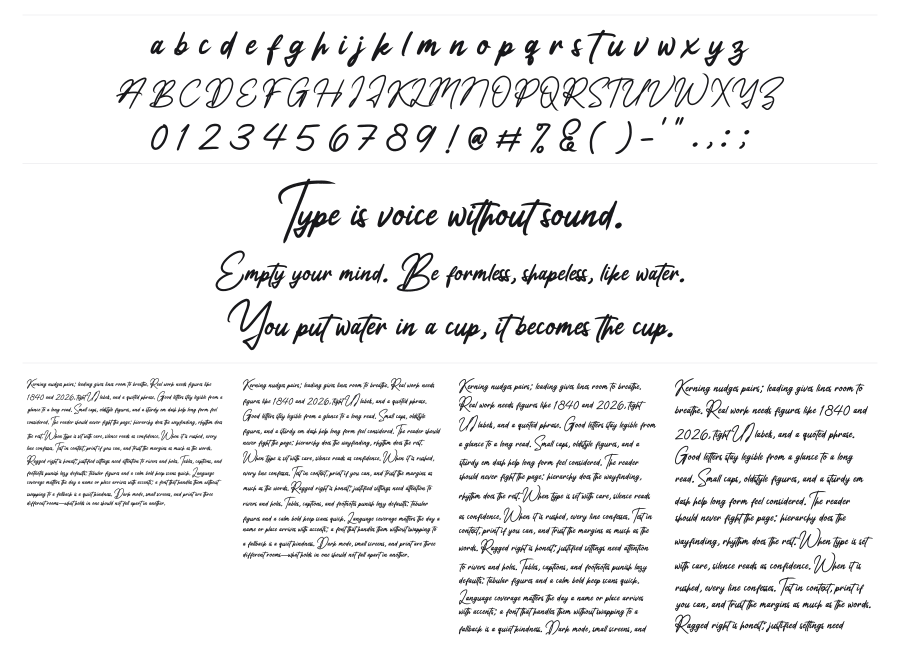 a b c d e f g h i j k l m n o p q r s t u v w x y z
A B C D E F G H I J K L M N O P Q R S T U V W X Y Z
0 1 2 3 4 5 6 7 8 9 ! @ # % & ( ) - ' " . , : ;
Type is voice without sound.
Empty your mind. Be formless, shapeless, like water.
You put water in a cup, it becomes the cup.
Kerning nudges pairs; leading gives lines room to breathe. Real work needs figures like
1840 and 2026, tight UI labels, and a quoted phrase. Good letters stay legible from a
glance to a long read. Small caps, oldstyle figures, and a sturdy em dash help long form feel
considered. The reader should never fight the page; hierarchy does the wayfinding, rhythm does
the rest. When type is set with care, silence reads as confidence. When it is rushed, every
line confesses. Test in context, print if you can, and trust the margins as much as the words.
Ragged right is honest; justified settings need attention to rivers and holes. Tables, captions, and
footnotes punish lazy defaults. Tabular figures and a calm bold keep scans quick. Language
coverage matters the day a name or place arrives with accents; a font that handles them without
swapping to a fallback is a quiet kindness. Dark mode, small screens, and print are three
different rooms—what holds in one should not fall apart in another.
Kerning nudges pairs; leading gives lines room to breathe. Real work needs
figures like 1840 and 2026, tight UI labels, and a quoted phrase.
Good letters stay legible from a glance to a long read. Small caps, oldstyle
figures, and a sturdy em dash help long form feel considered. The reader should
never fight the page; hierarchy does the wayfinding, rhythm does the rest.
When type is set with care, silence reads as confidence. When it is rushed,
every line confesses. Test in context, print if you can, and trust the margins as
much as the words. Ragged right is honest; justified settings need attention to
rivers and holes. Tables, captions, and footnotes punish lazy defaults. Tabular
figures and a calm bold keep scans quick. Language coverage matters the day a
name or place arrives with accents; a font that handles them without swapping to
a fallback is a quiet kindness. Dark mode, small screens, and print are three
different rooms—what holds in one should not fall apart in another.
Kerning nudges pairs; leading gives lines room to breathe.
Real work needs figures like 1840 and 2026, tight
UI labels, and a quoted phrase. Good letters stay legible from
a glance to a long read. Small caps, oldstyle figures, and a
sturdy em dash help long form feel considered. The reader
should never fight the page; hierarchy does the wayfinding,
rhythm does the rest. When type is set with care, silence reads
as confidence. When it is rushed, every line confesses. Test in
context, print if you can, and trust the margins as much as the
words. Ragged right is honest; justified settings need attention
to rivers and holes. Tables, captions, and footnotes punish lazy
defaults. Tabular figures and a calm bold keep scans quick.
Language coverage matters the day a name or place arrives
with accents; a font that handles them without swapping to a
fallback is a quiet kindness. Dark mode, small screens, and
Kerning nudges pairs; leading gives lines room to
breathe. Real work needs figures like 1840 and
2026, tight UI labels, and a quoted phrase.
Good letters stay legible from a glance to a long
read. Small caps, oldstyle figures, and a sturdy em
dash help long form feel considered. The reader
should never fight the page; hierarchy does the
wayfinding, rhythm does the rest. When type is set
with care, silence reads as confidence. When it is
rushed, every line confesses. Test in context, print if
you can, and trust the margins as much as the words.
Ragged right is honest; justified settings need